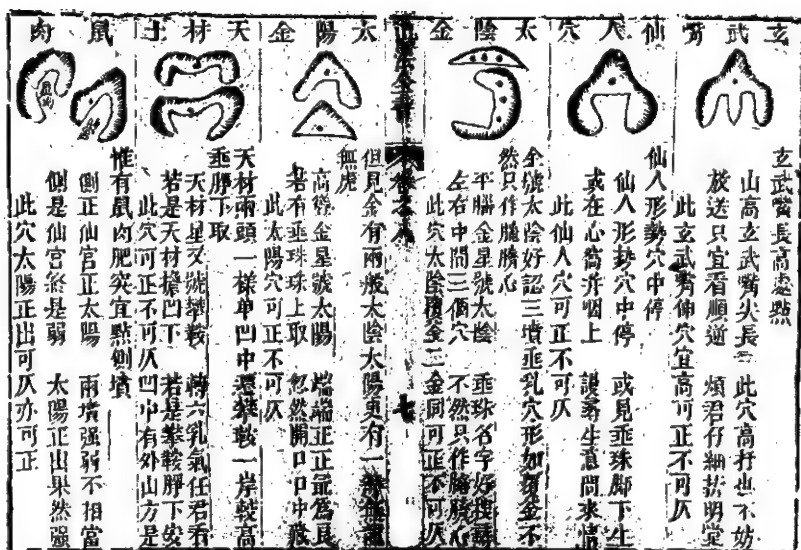 玄武嘴
玄武嘴長高處點
山高玄武嘴尖長 此穴高扦也不妨
放送只宜看順逆 煩君仔細於明堂
此玄武嘴伸穴宜高可正不可仄
仙人穴
仙人形勢穴中停
仙人形勢穴中停 或見垂珠腳下生
或在心窩并咽上 問來情
此仙人穴可正不可仄
太陰金
金號太陰好認三墳垂乳穴形如覆金不
然只作騰騰心
平騰金星號太陰 垂珠名字好搜尋
左右中間三個穴 不然只作騰騰心
此穴太陰覆金二金同可正不可仄
七
太陽金
但見金有兩般太陰太陽更有一
無虎
高聳金星號太陽 端端正正最為良
若有垂珠珠上取 忽然開口口中藏
此太陽穴可正不可仄
天材土
天材兩頭一樣单凹中還攀鞍一岸較高
垂腳下取
天材星又號攀鞍 轉穴乳氣任君看
若是天材擔凹下 若是攀鞍腳下安
此穴可正不可仄凹中有外山方是
鼠肉
惟有鼠肉肥突宜點側墳
側正仙宮正太陽 兩墳强弱不相當
側是仙宮終是弱 太陽正出果然强
此穴太陽正出可仄亦可正